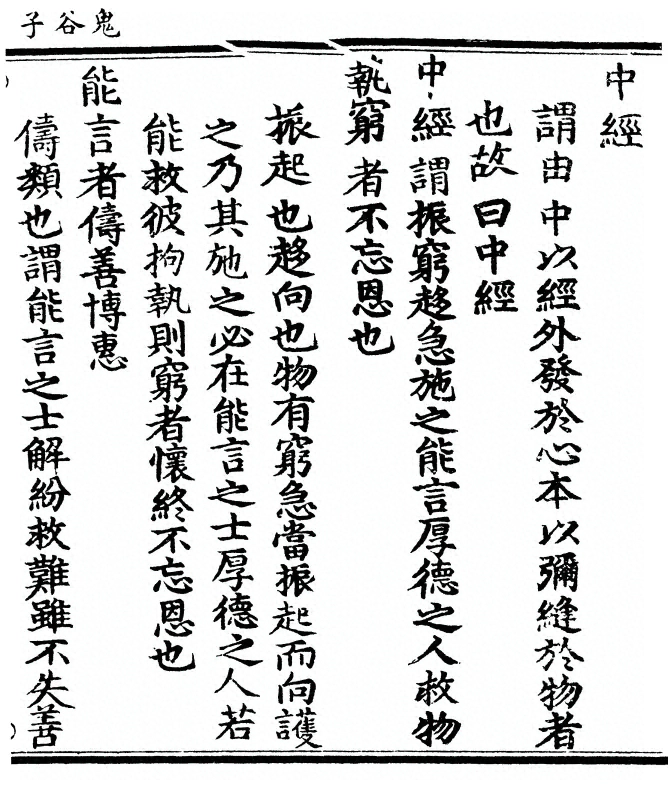 鬼谷子
中經
謂由中以經外發於心本以彌縫於物者
也故曰中經
中經謂振窮趍急施之能言厚德之人救物
執窮者不忘恩也
振起也趍向也物有窮急當振起而向護
之乃其施之必在能言之士厚德之人若
能救彼拘執則窮者懷終不忘恩也
能言者儔善博惠
儔類也謂能言之士解紛救難雖不失善